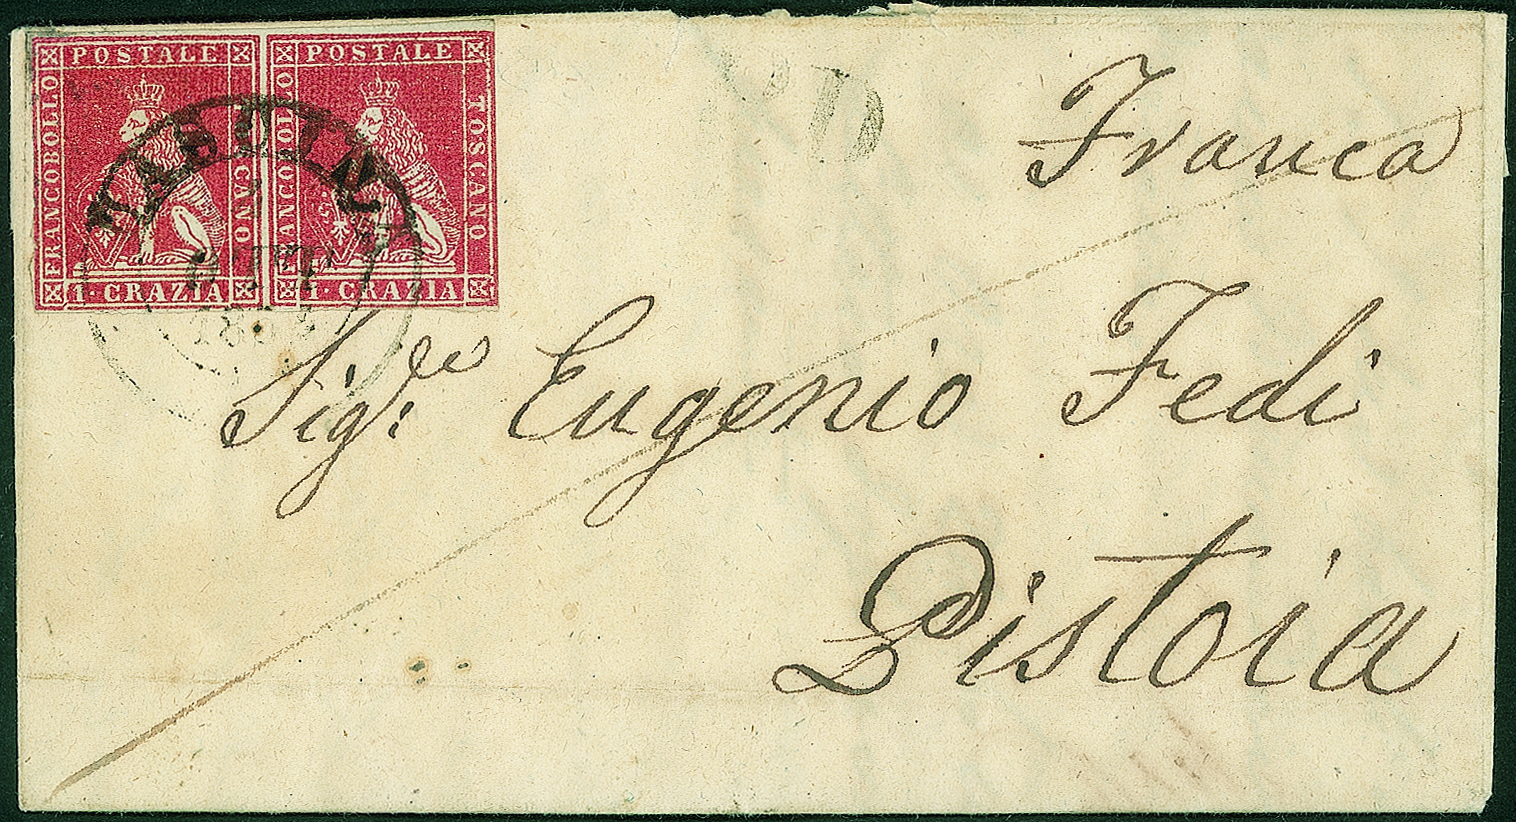 POSTALE POSTALE
FRANCOBOLLO TOSCANO FRANCOBOLLO TOSCANO
1·CRAZIA 1·CRAZIA
PD
Franca
Sig:re Eugenio Fedi
Pistoia